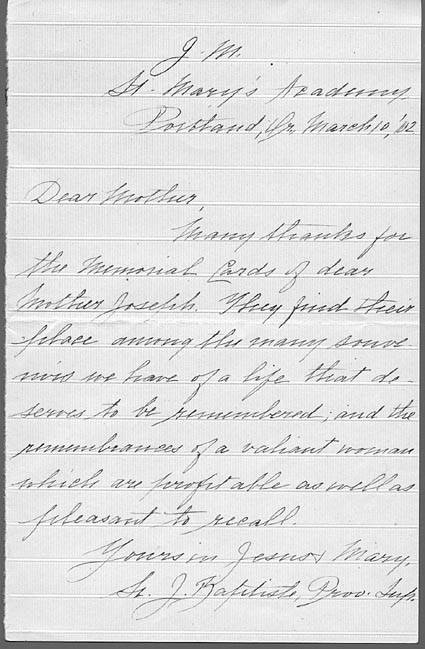 J. M.
St. Mary's Academy
Portland, Or. March 10, '02
Dear Mother,
Many thanks for
the Memorial Cards of dear
Mother Joseph. They find their
place among the many souve-
nirs we have of a life that de-
serves to be remembered; and the
remembrances of a valiant woman
which are profitable as well as
pleasant to recall.
Yours in Jesus & Mary,
Sr. J. Baptiste, Prov. Sup.